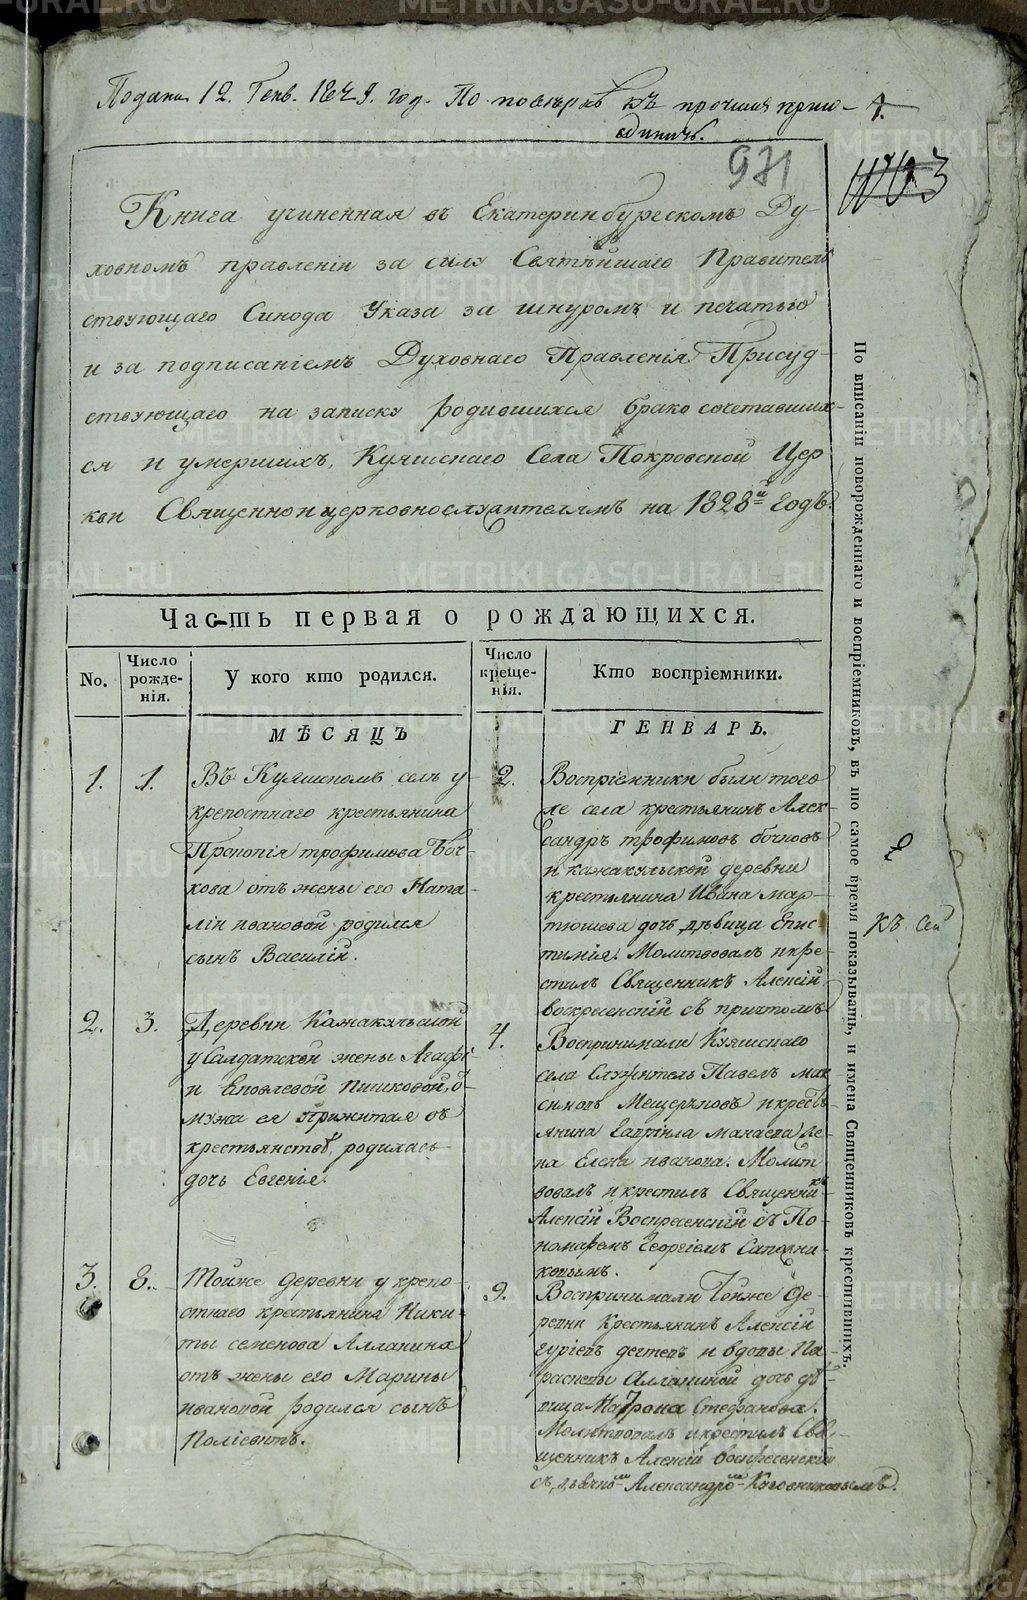 Подана 12. Генв. 1829. год. По повѣркѣ къ прочимъ приоб-
щить.
1.
971
Книга учиненная въ Екатеринбургскомъ Ду-
ховномъ правленіи за силу Святѣйшаго Правитель
ствующаго Синода Указа за шнуромъ и печатью
и за подписаніемъ Духовнаго Правленія Присуд-
ствующаго на записку родившихся бракосочетавших-
ся и умершихъ, Куяшскаго Села Покровской Цер
кви Священноицерковнослужителямъ на 1828й Годъ.
Часть первая о рождающихся.
No.
Число рожде-нія.
У кого кто родился.
Число креще-нія.
Кто воспріемники.
МѢСЯЦЪ
ГЕНВАРЬ.
1. 1.
Въ Куяшскомъ селѣ у
крепостнаго крестьянина
Прокопія трофимова Боч-
кова отъ жены его Ната-
ліи ивановой родился
сынъ Василій.
2.
Воспріемники были того
же села крестьянинъ Алек-
сандръ трофимовъ бочковъ
и камакульской деревни
крестьянина Ивана мар-
тюшева дочь дѣвица Епис-
тимія. Молитвовалъ икре-
стилъ Священникъ Алексій
воскресенскій съ причтомъ
2. 3.
Деревни Камакульской
у Салдатской жены Агафі-
и Яковлевой Пишковой, съ
мужа ея прижитая въ
крестьянствѣ, родилась
дочь Евгенія.
4.
Воспринимали Куяшскаго
села Служитель Павелъ мак
симовъ Мещеряковъ икресть
янина Гаврила манаева же-
на Елена иванова. Молит
вовалъ икрестилъ Священникъ
Алексій Воскресенскій съ По-
номаремъ Георгіемъ Сапожни-
ковымъ.
3. 8.
Тойже деревни у крепо-
стнаго крестьянина Ники-
ты семенова Аллапина
отъ жены его Марины
ивановой родился сынъ
Поліевктъ.
9.
Воспринимали Тойже де-
ревни Крестьянинъ Алексій
гуріевъ дегтевъ и вдовы Па-
расковы Аллапиной дочь дѣ-
вица Матрона Стефанова.
Молитвовалъ икрестилъ Свя-
щенникъ Алексій воскресенскій
съ дьячкомъ Александромъ Кузовниковымъ.
По вписаніи новорожденнаго и воспріемниковъ, въ то самое время показывать, и имена Священниковъ крестившихъ.
къ сей